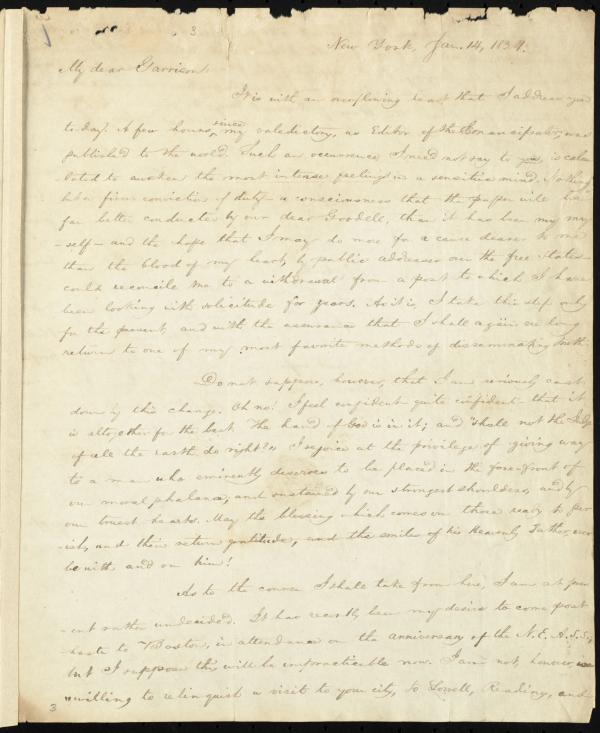 3
New York, Jan. 14, 1834.
My dear Garrison,
It is with an overflowing heart that I address you
to-day. A few hours since my valedictory, as Editor of the Emancipator, was
published to the world. Such an occurrence, I need not say to you, is calcu
-lated to awaken the most intense feelings in a sensitive mind. Nothing
but a firm conviction of duty - a consciousness that the paper will be
far better conducted by our dear Goodell, than it has been by my
-self - and the hope that I may do more for a cause dearer to me
than the blood of my heart, by public addresses over the free States -
could reconcile me to a withdrawal from a post to which I have
been looking with solicitude for years. As it is, I take this step only
for the present, and with the assurance that I shall again ere long
return to one of my most favorite methods of disseminating truth.
Do not suppose, however, that I am seriously cast
down by this change. Oh no! I feel confident - quite confident - that it
is altogether for the best. The hand of God is in it; and "shall not the Judge
of all the earth do right?" I rejoice at the privilege of giving way
to a man who eminently deserves to be placed in the forefront of
our moral phalanx, and sustained by our strongest shoulders, and by
our truest hearts. May the blessing which comes on those ready to per
-ish, and their return gratitude, and the smiles of his Heavenly Father, ever
be with and on him!
As to the course I shall take from here, I am at pres
-ent rather undecided. It has recently been my desire to come post
haste to Boston, in attendance on the anniversary of the N. E. A. S. S.;
but I suppose this will be impracticable now. I am not, however, un
-willing to relinquish a visit to your city, to Lowell, Reading, and
3